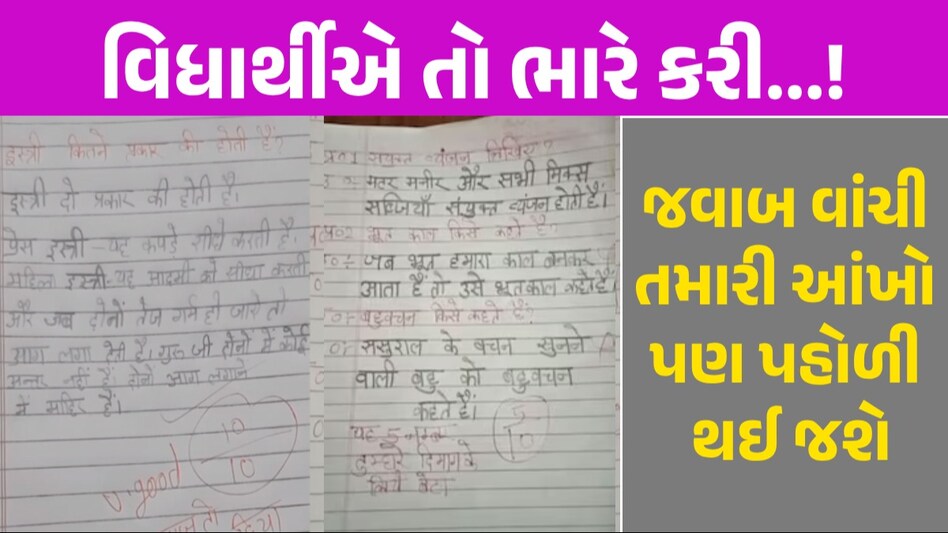 વિધાર્થીએ તો ભારે કરી...!
इस्त्री कितने प्रकार की होती है?
इस्त्री दो प्रकार की होती है।
प्रेस इस्त्री - यह कपड़े सीधे करती है।
महिला इस्त्री - यह आदमी को सीधा करती
और जब दोनों तेज गर्म हो जाये तो
आग लगा देती है। गुरु जी दोनों में कोई
अन्तर नहीं है दोनों आग लगाने
में माहिर हैं।
10
10
v. good
प्र०1 संयुक्त व्यंजन लिखिए?
उ०:- मटर पनीर और सभी मिक्स
सब्जियाँ संयुक्त व्यंजन होती हैं।
प्र०2 भूत काल किसे कहते है?
उ०:- जब भूत हमारा काल बनकर
आता है तो उसे भूतकाल कहते हैं
बहुवचन किसे कहते है?
उ०:- ससुराल के वचन सुनने
वाली बहु को बहुवचन
कहते हैं।
5
10
यह 5 नम्बर
तुम्हारे दिमाग के
लिये बेटा
જવાબ વાંચી
તમારી આંખો
પણ પહોળી
થઈ જશે